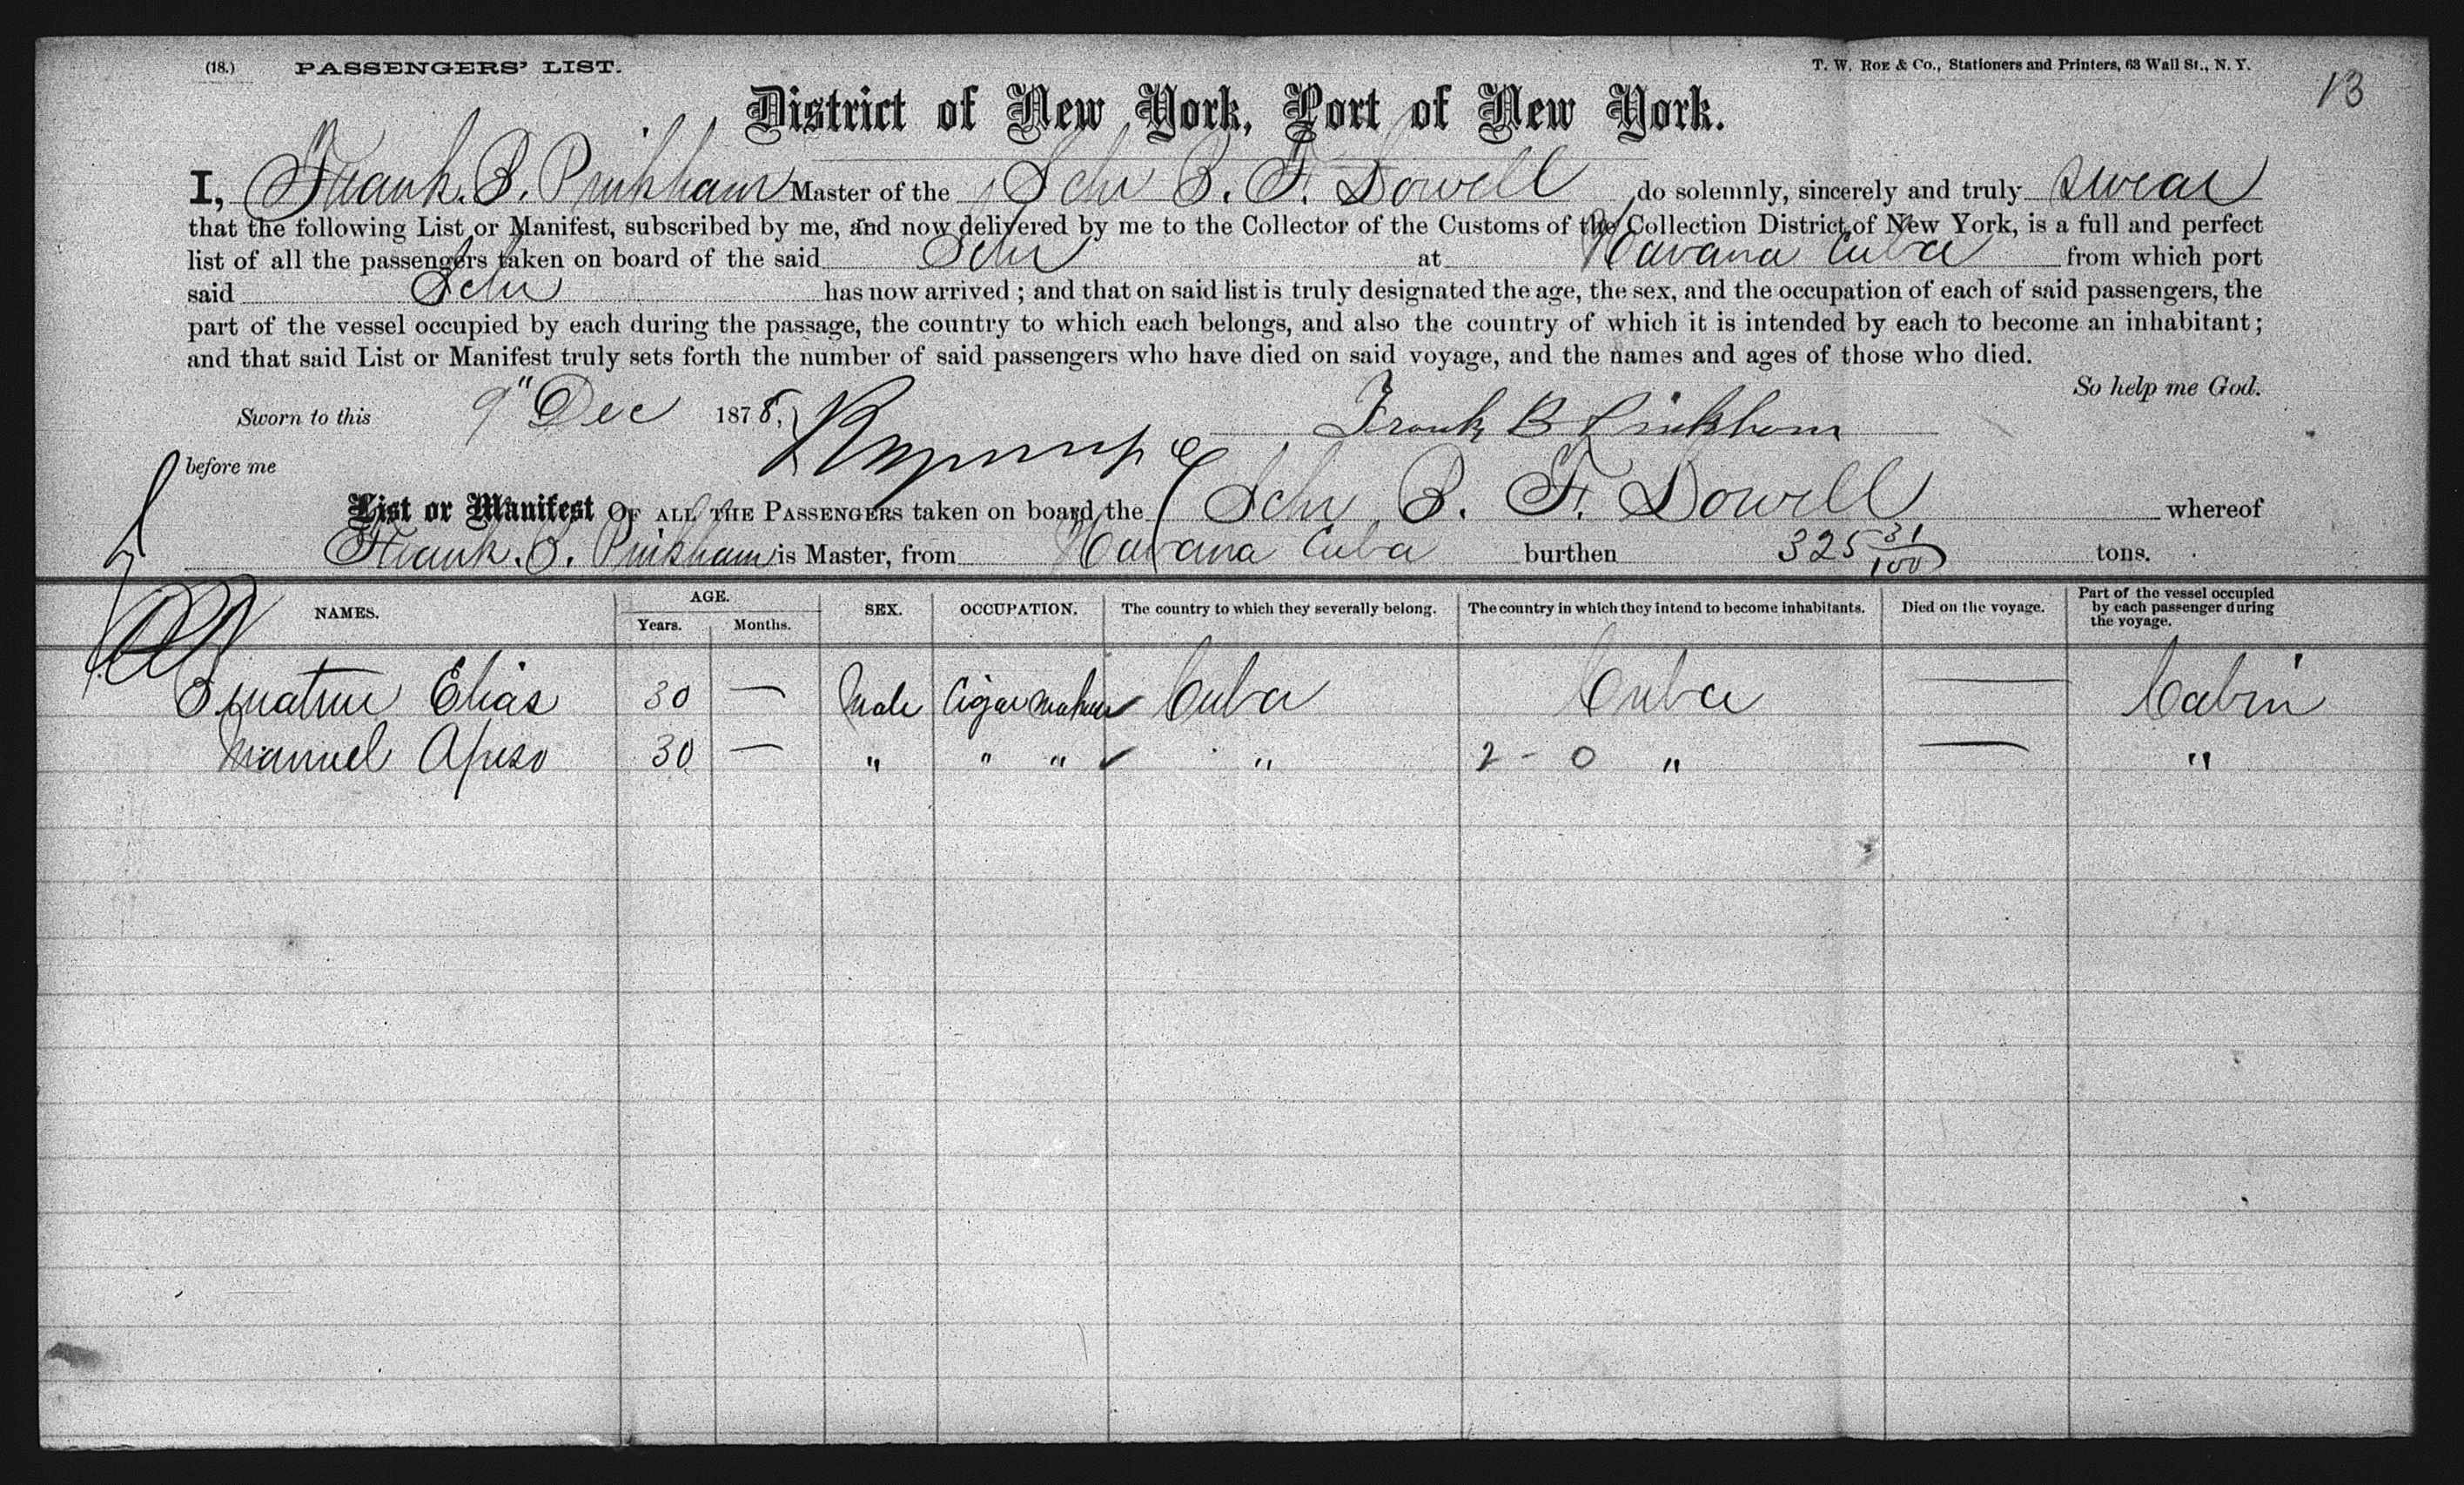 (18.) PASSENGERS' LIST. T. W. ROE & Co., Stationers and Printers, 63 Wall St., N. Y.
13
District of New York, Port of New York.
I, Frank. B. Pinkham Master of the Schr B. F. Dowell do solemnly, sincerely and truly swear
that the following List or Manifest, subscribed by me, and now delivered by me to the Collector of the Customs of the Collection District of New York, is a full and perfect
list of all the passengers taken on board of the said Schr at Havana Cuba from which port
said Schr has now arrived ; and that on said list is truly designated the age, the sex, and the occupation of each of said passengers, the
part of the vessel occupied by each during the passage, the country to which each belongs, and also the country of which it is intended by each to become an inhabitant ;
and that said List or Manifest truly sets forth the number of said passengers who have died on said voyage, and the names and ages of those who died.
So help me God.
Sworn to this 9" Dec 1878, Frank B Pinkham
before me
List or Manifest OF ALL THE PASSENGERS taken on board the Schr B. F. Dowell whereof
Frank. B. Pinkham is Master, from Havana Cuba burthen 325 31/100 tons.
NAMES. AGE. Years. Months. SEX. OCCUPATION. The country to which they severally belong. The country in which they intend to become inhabitants. Died on the voyage. Part of the vessel occupied by each passenger during the voyage.
Elias 30 — Male Cigar maker Cuba Cuba — Cabin
Manuel 30 — " " " " 2 - 0 " — "